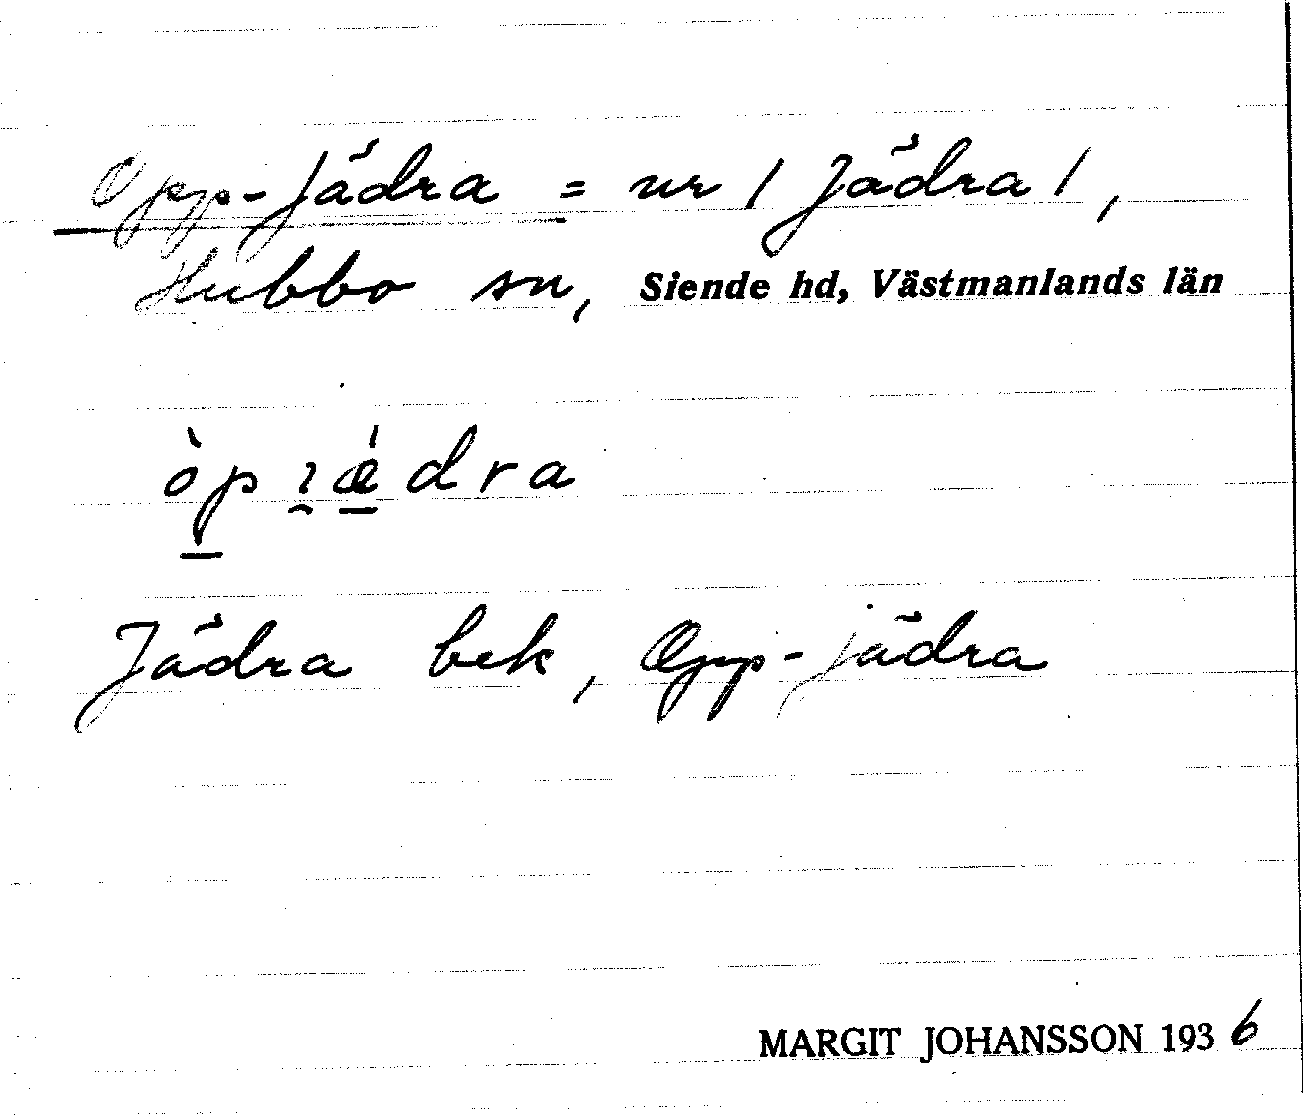 Opp-Jädra = nr 1 Jädra 1,
Hubbo sn, Siende hd, Västmanlands län
òpıǽdra
Jädra bek, Opp-jädra
MARGIT JOHANSSON 1936